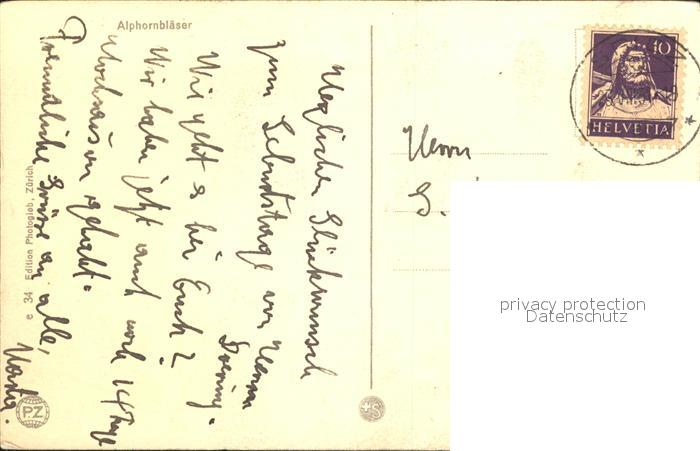 Alphornbläser
Herzlichen Glückwunsch
zum Geburtstage von Herrn
Wie geht es bei Euch?
Wir haben jetzt auch noch 14 Tage
gehabt.
Freundliche Grüsse an alle,
e 34 Edition Photoglob, Zürich
PZ
S
10
HELVETIA
Herrn
G.
privacy protection
Datenschutz